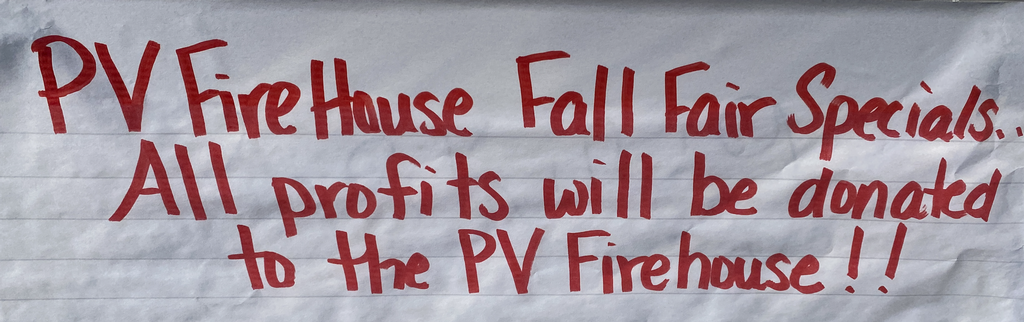 PV FireHouse Fall Fair Specials..
All profits will be donated
to the PV Firehouse!!